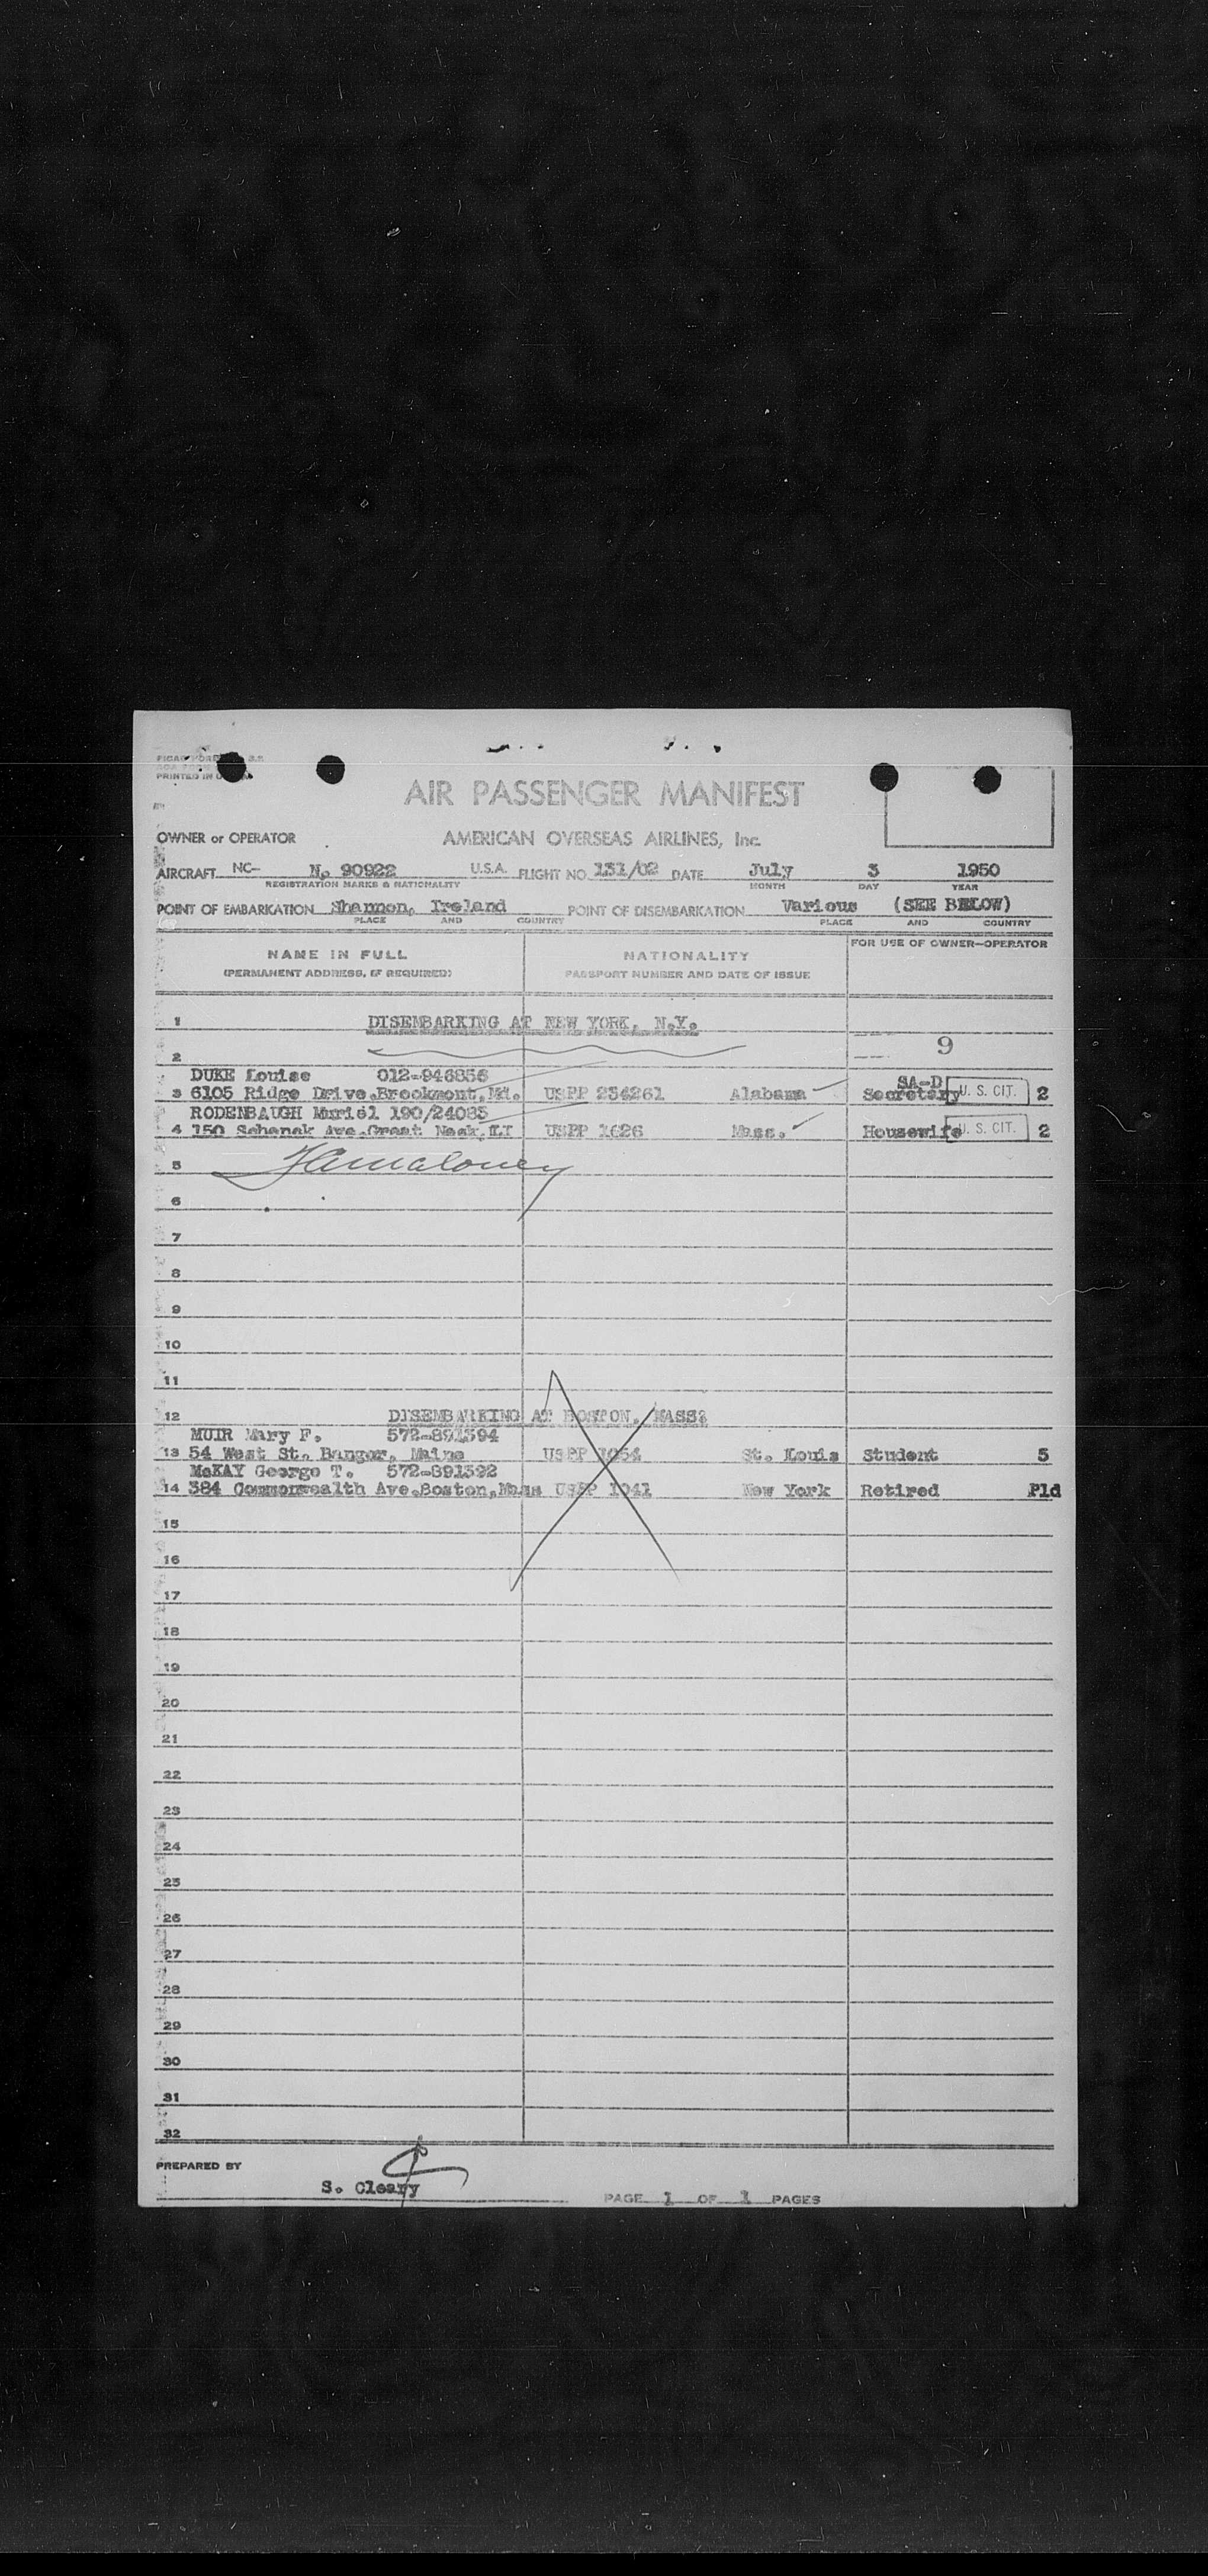 PRINTED IN U.S.A.
AIR PASSENGER MANIFEST
OWNER or OPERATOR AMERICAN OVERSEAS AIRLINES, Inc.
AIRCRAFT NC- N. 90922 U.S.A. FLIGHT NO. 131/02 DATE July 3 1950
REGISTRATION MARKS & NATIONALITY MONTH DAY YEAR
POINT OF EMBARKATION Shannon, Ireland POINT OF DISEMBARKATION Various (SEE BELOW)
PLACE AND COUNTRY PLACE AND COUNTRY
NAME IN FULL NATIONALITY FOR USE OF OWNER-OPERATOR
(PERMANENT ADDRESS, IF REQUIRED) PASSPORT NUMBER AND DATE OF ISSUE
1 DISEMBARKING AT NEW YORK, N.Y.
2 9
DUKE Louise 012-946856 SA-D
3 6105 Ridge Drive.Brookmont,Md. USPP 234261 Alabama Secretary U. S. CIT. 2
RODENBAUGH Muriel 190/24085
4 150 Schenck Ave.Great Neck,LI USPP 1626 Mass. Housewife U. S. CIT. 2
5
6
7
8
9
10
11
12 DISEMBARKING AT BOSTON, MASS:
MUIR Mary F. 572-891394
13 54 West St. Bangor, Maine USPP 1054 St. Louis Student 5
McKAY George T. 572-891392
14 384 Commonwealth Ave.Boston,Mass USPP 1041 New York Retired Pld
15
16
17
18
19
20
21
22
23
24
25
26
27
28
29
30
31
32
PREPARED BY
S. Cleary PAGE 1 OF 1 PAGES